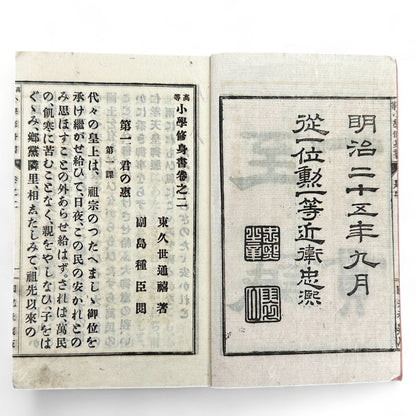 明治二十五年九月
從一位勲一等近衛忠凞
高等小學修身書卷之二
東久世通禧著
副島種臣閲
第一 君の惠
第一課
代々の皇上は、祖宗のつたへましゝ御位を
承け繼がせ給ひて、日夜、この民の安かれとの
み思ほすことの外あらせ給はず。されば萬民
の飢寒に苦むことなく、親をやしなひ子をは
ぐゝみ、鄕黨隣里、相ゑたしみて、祖先以來の